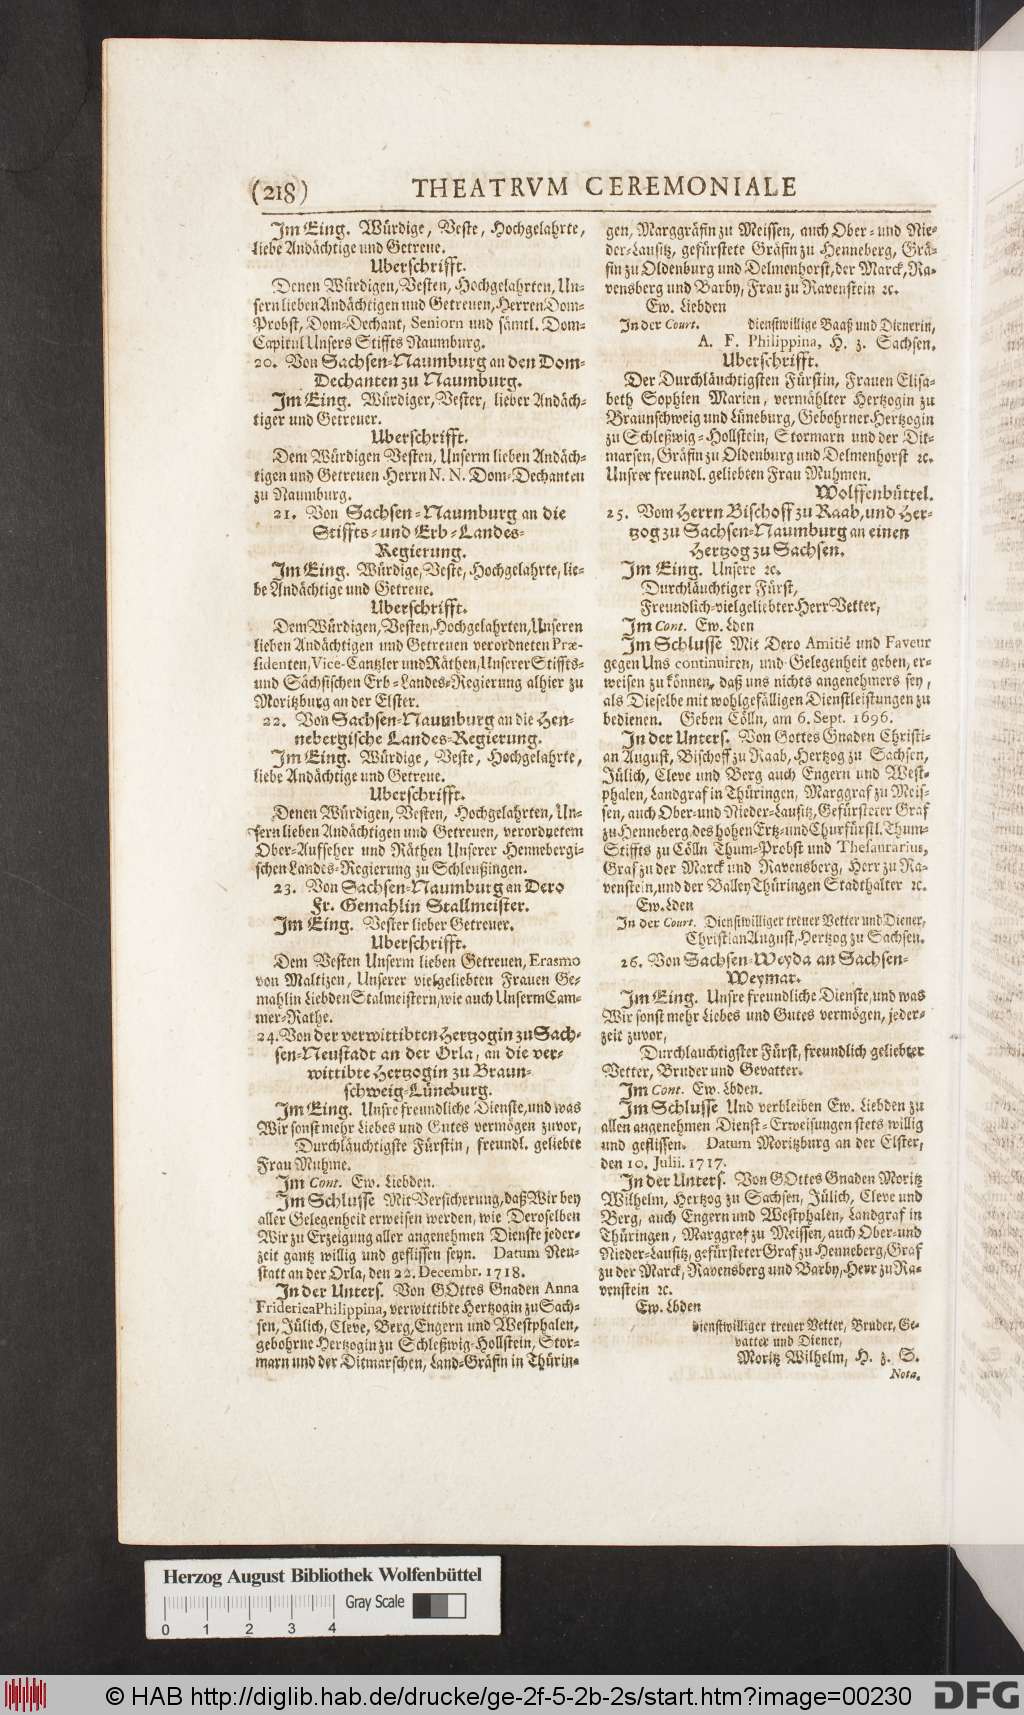 (218) THEATRVM CEREMONIALE
Im Eing. Würdige, Veste, Hochgelahrte,
liebe Andächtige und Getreue.
Uberschrifft.
Denen Würdigen, Vesten, Hochgelahrten, Un-
sern lieben Andächtigen und Getreuen, Herren Dom-
Probst, Dom-Dechant, Seniorn und sämtl. Dom-
Capitul Unsers Stiffts Naumburg.
20. Von Sachsen-Naumburg an den Dom-
Dechanten zu Naumburg.
Im Eing. Würdiger, Vester, lieber Andäch-
tiger und Getreuer.
Uberschrifft.
Dem Würdigen Vesten, Unserm lieben Andäch-
tigen und Getreuen Herrn N. N. Dom-Dechanten
zu Naumburg.
21. Von Sachsen-Naumburg an die
Stiffts- und Erb-Landes-
Regierung.
Im Eing. Würdige, Veste, Hochgelahrte, lie-
be Andächtige und Getreue.
Uberschrifft.
Dem Würdigen, Vesten, Hochgelahrten, Unseren
lieben Andächtigen und Getreuen verordneten Præ-
sidenten, Vice-Cantzler und Räthen, Unserer Stiffts-
und Sächsischen Erb-Landes-Regierung alhier zu
Moritzburg an der Elster.
22. Von Sachsen-Naumburg an die Hen-
nebergische Landes-Regierung.
Im Eing. Würdige, Veste, Hochgelahrte,
liebe Andächtige und Getreue.
Uberschrifft.
Denen Würdigen, Vesten, Hochgelahrten, Un-
sern lieben Andächtigen und Getreuen, verordnetem
Ober-Aufseher und Räthen Unserer Hennebergi-
schen Landes-Regierung zu Schleußingen.
23. Von Sachsen-Naumburg an Dero
Fr. Gemahlin Stallmeister.
Im Eing. Vester lieber Getreuer.
Uberschrifft.
Dem Vesten Unserm lieben Getreuen, Erasmo
von Maltizen, Unserer vielgeliebten Frauen Ge-
mahlin Liebden Stalmeistern, wie auch Unserm Cam-
mer-Rathe.
24. Von der verwittibten Hertzogin zu Sach-
sen-Neustadt an der Orla, an die ver-
wittibte Hertzogin zu Braun-
schweig-Lüneburg.
Im Eing. Unsre freundliche Dienste, und was
Wir sonst mehr Liebes und Gutes vermögen zuvor,
Durchläuchtigste Fürstin, freundl. geliebte
Frau Muhme.
Im Cont. Ew. Liebden.
Im Schlusse Mit Versicherung, daß Wir bey
aller Gelegenheit erweisen werden, wie Deroselben
Wir zu Erzeigung aller angenehmen Dienste jeder-
zeit gantz willig und geflissen seyn. Datum Neu-
statt an der Orla, den 22. Decembr. 1718.
In der Unters. Von GOttes Gnaden Anna
Friderica Philippina, verwittibte Hertzogin zu Sach-
sen, Jülich, Cleve, Berg, Engern und Westphalen,
gebohrne Hertzogin zu Schleßwig-Hollstein, Stor-
marn und der Ditmarschen, Land-Gräfin in Thürin-
gen, Marggräfin zu Meissen, auch Ober- und Nie-
der-Lausitz, gefürstete Gräfin zu Henneberg, Grä-
fin zu Oldenburg und Delmenhorst, der Marck, Ra-
vensberg und Barby, Frau zu Ravenstein ꝛc.
Ew. Liebden
In der Court. dienstwillige Baaß und Dienerin,
A. F. Philippina, H. z. Sachsen.
Uberschrifft.
Der Durchläuchtigsten Fürstin, Frauen Elisa-
beth Sophien Marien, vermählter Hertzogin zu
Braunschweig und Lüneburg, Gebohrner Hertzogin
zu Schleßwig-Hollstein, Stormarn und der Dit-
marsen, Gräfin zu Oldenburg und Delmenhorst ꝛc.
Unsrer freundl. geliebten Frau Muhmen.
Wolffenbüttel.
25. Vom Herrn Bischoff zu Raab, und Her-
tzog zu Sachsen-Naumburg an einen
Hertzog zu Sachsen.
Im Eing. Unsere ꝛc.
Durchläuchtiger Fürst,
Freundlich-vielgeliebter Herr Vetter,
Im Cont. Ew. Lden
Im Schlusse Mit Dero Amitié und Faveur
gegen Uns continuiren, und Gelegenheit geben, er-
weisen zu können, daß uns nichts angenehmers sey,
als Dieselbe mit wohlgefälligen Dienstleistungen zu
bedienen. Geben Cölln, am 6. Sept. 1696.
In der Unters. Von Gottes Gnaden Christi-
an August, Bischoff zu Raab, Hertzog zu Sachsen,
Jülich, Cleve und Berg auch Engern und West-
phalen, Landgraf in Thüringen, Marggraf zu Meis-
sen, auch Ober- und Nieder-Lausitz, Gefürsteter Graf
zu Henneberg, des hohen Ertz- und Churfürstl. Thum-
Stiffts zu Cölln Thum-Probst und Thesaurarius,
Graf zu der Marck und Ravensberg, Herr zu Ra-
venstein, und der Balley Thüringen Stadthalter ꝛc.
Ew. Lden
In der Court. Dienstwilliger treuer Vetter und Diener,
Christian August, Hertzog zu Sachsen.
26. Von Sachsen-Weyda an Sachsen-
Weymar.
Im Eing. Unsre freundliche Dienste, und was
Wir sonst mehr Liebes und Gutes vermögen, jeder-
zeit zuvor,
Durchlauchtigster Fürst, freundlich geliebter
Vetter, Bruder und Gevatter.
Im Cont. Ew. Lbden.
Im Schlusse Und verbleiben Ew. Liebden zu
allen angenehmen Dienst-Erweisungen stets willig
und geflissen. Datum Moritzburg an der Elster,
den 10. Julii. 1717.
In der Unters. Von GOttes Gnaden Moritz
Wilhelm, Hertzog zu Sachsen, Jülich, Cleve und
Berg, auch Engern und Westphalen, Landgraf in
Thüringen, Marggraf zu Meissen, auch Ober- und
Nieder-Lausitz, gefürsteter Graf zu Henneberg, Graf
zu der Marck, Ravensberg und Barby, Herr zu Ra-
venstein ꝛc.
Ew. Lbden
dienstwilliger treuer Vetter, Bruder, Ge-
vatter und Diener,
Moritz Wilhelm, H. z. S.
Nota.
Herzog August Bibliothek Wolfenbüttel
Gray Scale
0 1 2 3 4
© HAB http://diglib.hab.de/drucke/ge-2f-5-2b-2s/start.htm?image=00230 DFG